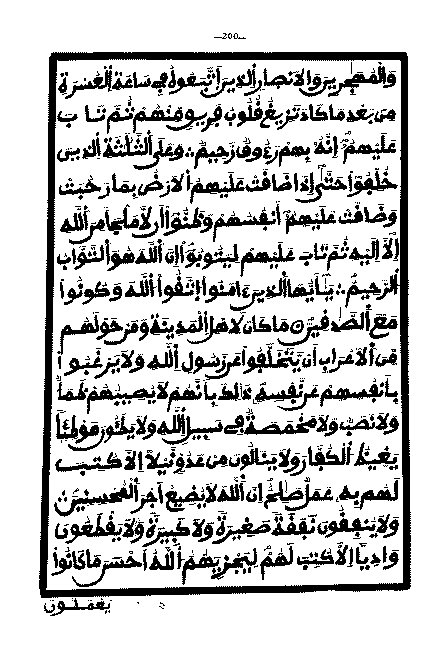 —200—
وَالْمُهَٰجِرِينَ وَالَانصَارِ الذِينَ اَتَّبَعُوهُ فِي سَاعَةِ الْعُسْرَةِ
مِنۢ بَعْدِ مَا كَادَ تَزِيغُ قُلُوبُ فَرِيقٍ مِّنْهُمْ ثُمَّ تَابَ
عَلَيْهِمُۥٓ إِنَّهُۥ بِهِمْ رَءُوفٌ رَّحِيمٌ ∴ وَعَلَى الثَّلَٰثَةِ الذِينَ
خُلِّفُوا حَتَّىٰٓ إِذَا ضَاقَتْ عَلَيْهِمُ الَارْضُ بِمَا رَحُبَتْ
وَضَاقَتْ عَلَيْهِمُۥٓ أَنفُسُهُمْ وَظَنُّوٓا أَن لَّا مَلْجَأَ مِنَ اَللَّهِ
إِلَّآ إِلَيْهِ ثُمَّ تَابَ عَلَيْهِمْ لِيَتُوبُوٓا إِنَّ اَللَّهَ هُوَ اَلتَّوَّابُ
الرَّحِيمُ ∴ يَٰٓأَيُّهَا الذِينَ ءَامَنُوا اتَّقُوا اللَّهَ وَكُونُوا
مَعَ الصَّٰدِقِينَ مَا كَانَ لِأَهْلِ الْمَدِينَةِ وَمَنْ حَوْلَهُم
مِّنَ الَاعْرَابِ أَنْ يَّتَخَلَّفُوا عَن رَّسُولِ اللَّهِ وَلَا يَرْغَبُوا
بِأَنفُسِهِمْ عَن نَّفْسِهِۦ ذَٰلِكَ بِأَنَّهُمْ لَا يُصِيبُهُمْ ظَمَأٌ
وَلَا نَصَبٌ وَلَا مَخْمَصَةٌ فِي سَبِيلِ اللَّهِ وَلَا يَطَـُٔونَ مَوْطِئًا
يَغِيظُ الْكُفَّارَ وَلَا يَنَالُونَ مِنْ عَدُوٍّ نَّيْلًا اِلَّا كُتِبَ
لَهُم بِهِۦ عَمَلٌ صَٰلِحٌ اِنَّ اللَّهَ لَا يُضِيعُ أَجْرَ الْمُحْسِنِينَ ∴
وَلَا يُنفِقُونَ نَفَقَةً صَغِيرَةً وَلَا كَبِيرَةً وَلَا يَقْطَعُونَ
وَادِيًا اِلَّا كُتِبَ لَهُمْ لِيَجْزِيَهُمُ اللَّهُ أَحْسَنَ مَا كَانُوا
يَعْمَلُونَ